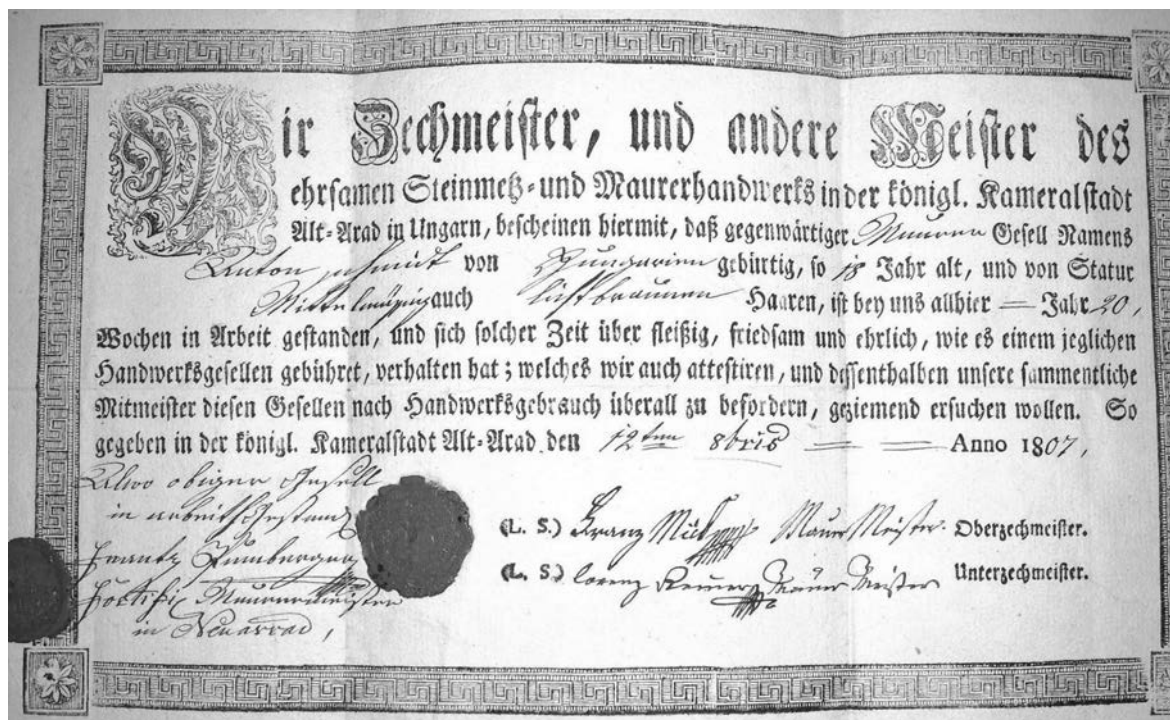 Wir Zechmeister, und andere Meister des
ehrsamen Steinmetz-und Maurerhandwerks in der königl. Kameralstadt
Alt-Arad in Ungarn, bescheinen hiermit, daß gegenwärtiger Maurer Gesell Namens
Anton schmidt von Hungarien gebürtig, so 18 Jahr alt, und von Statur
auch lichtbraunen Haaren, ist bey uns allhier = Jahr 20,
Wochen in Arbeit gestanden, und sich solcher Zeit über fleißig, friedsam und ehrlich, wie es einem jeglichen
Handwerksgesellen gebühret, verhalten hat; welches wir auch attestiren, und dessenthalben unsere sammentliche
Mitmeister diesen Gesellen nach Handwerksgebrauch überall zu befördern, geziemend ersuchen wollen. So
gegeben in der königl. Kameralstadt Alt-Arad den 12ten 8bris = = Anno 1807,
Alwo obiger Gesell
in arbeith gestand
Frantz
Maurermeister
in Neuarrad,
(L. S.) Franz Maurer Meister. Oberzechmeister.
(L. S.) lorenz Maurer Meister Unterzechmeister.